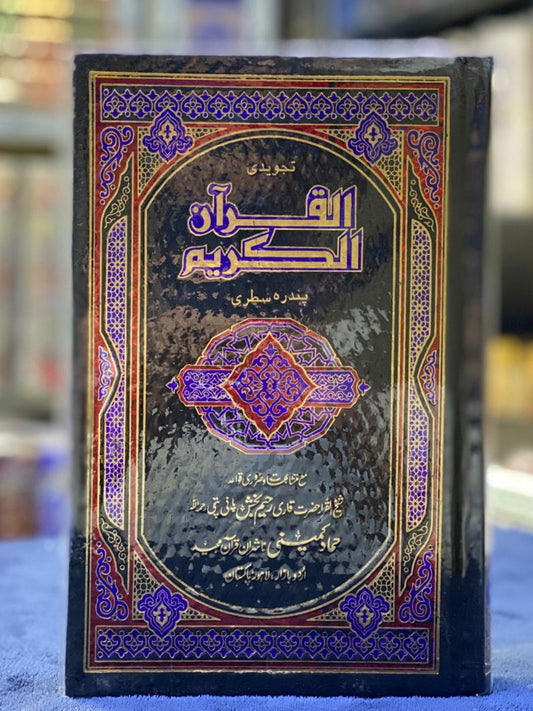 تجویدی
القرآن
الکریم
پندرہ سطری
مع متشابہات و ضروری قواعد
شیخ القراء حضرت قاری رحیم بخش پانی پتی رحمہ اللہ
حماد کمپنی ناشران قرآن مجید
اردو بازار، لاہور، پاکستان